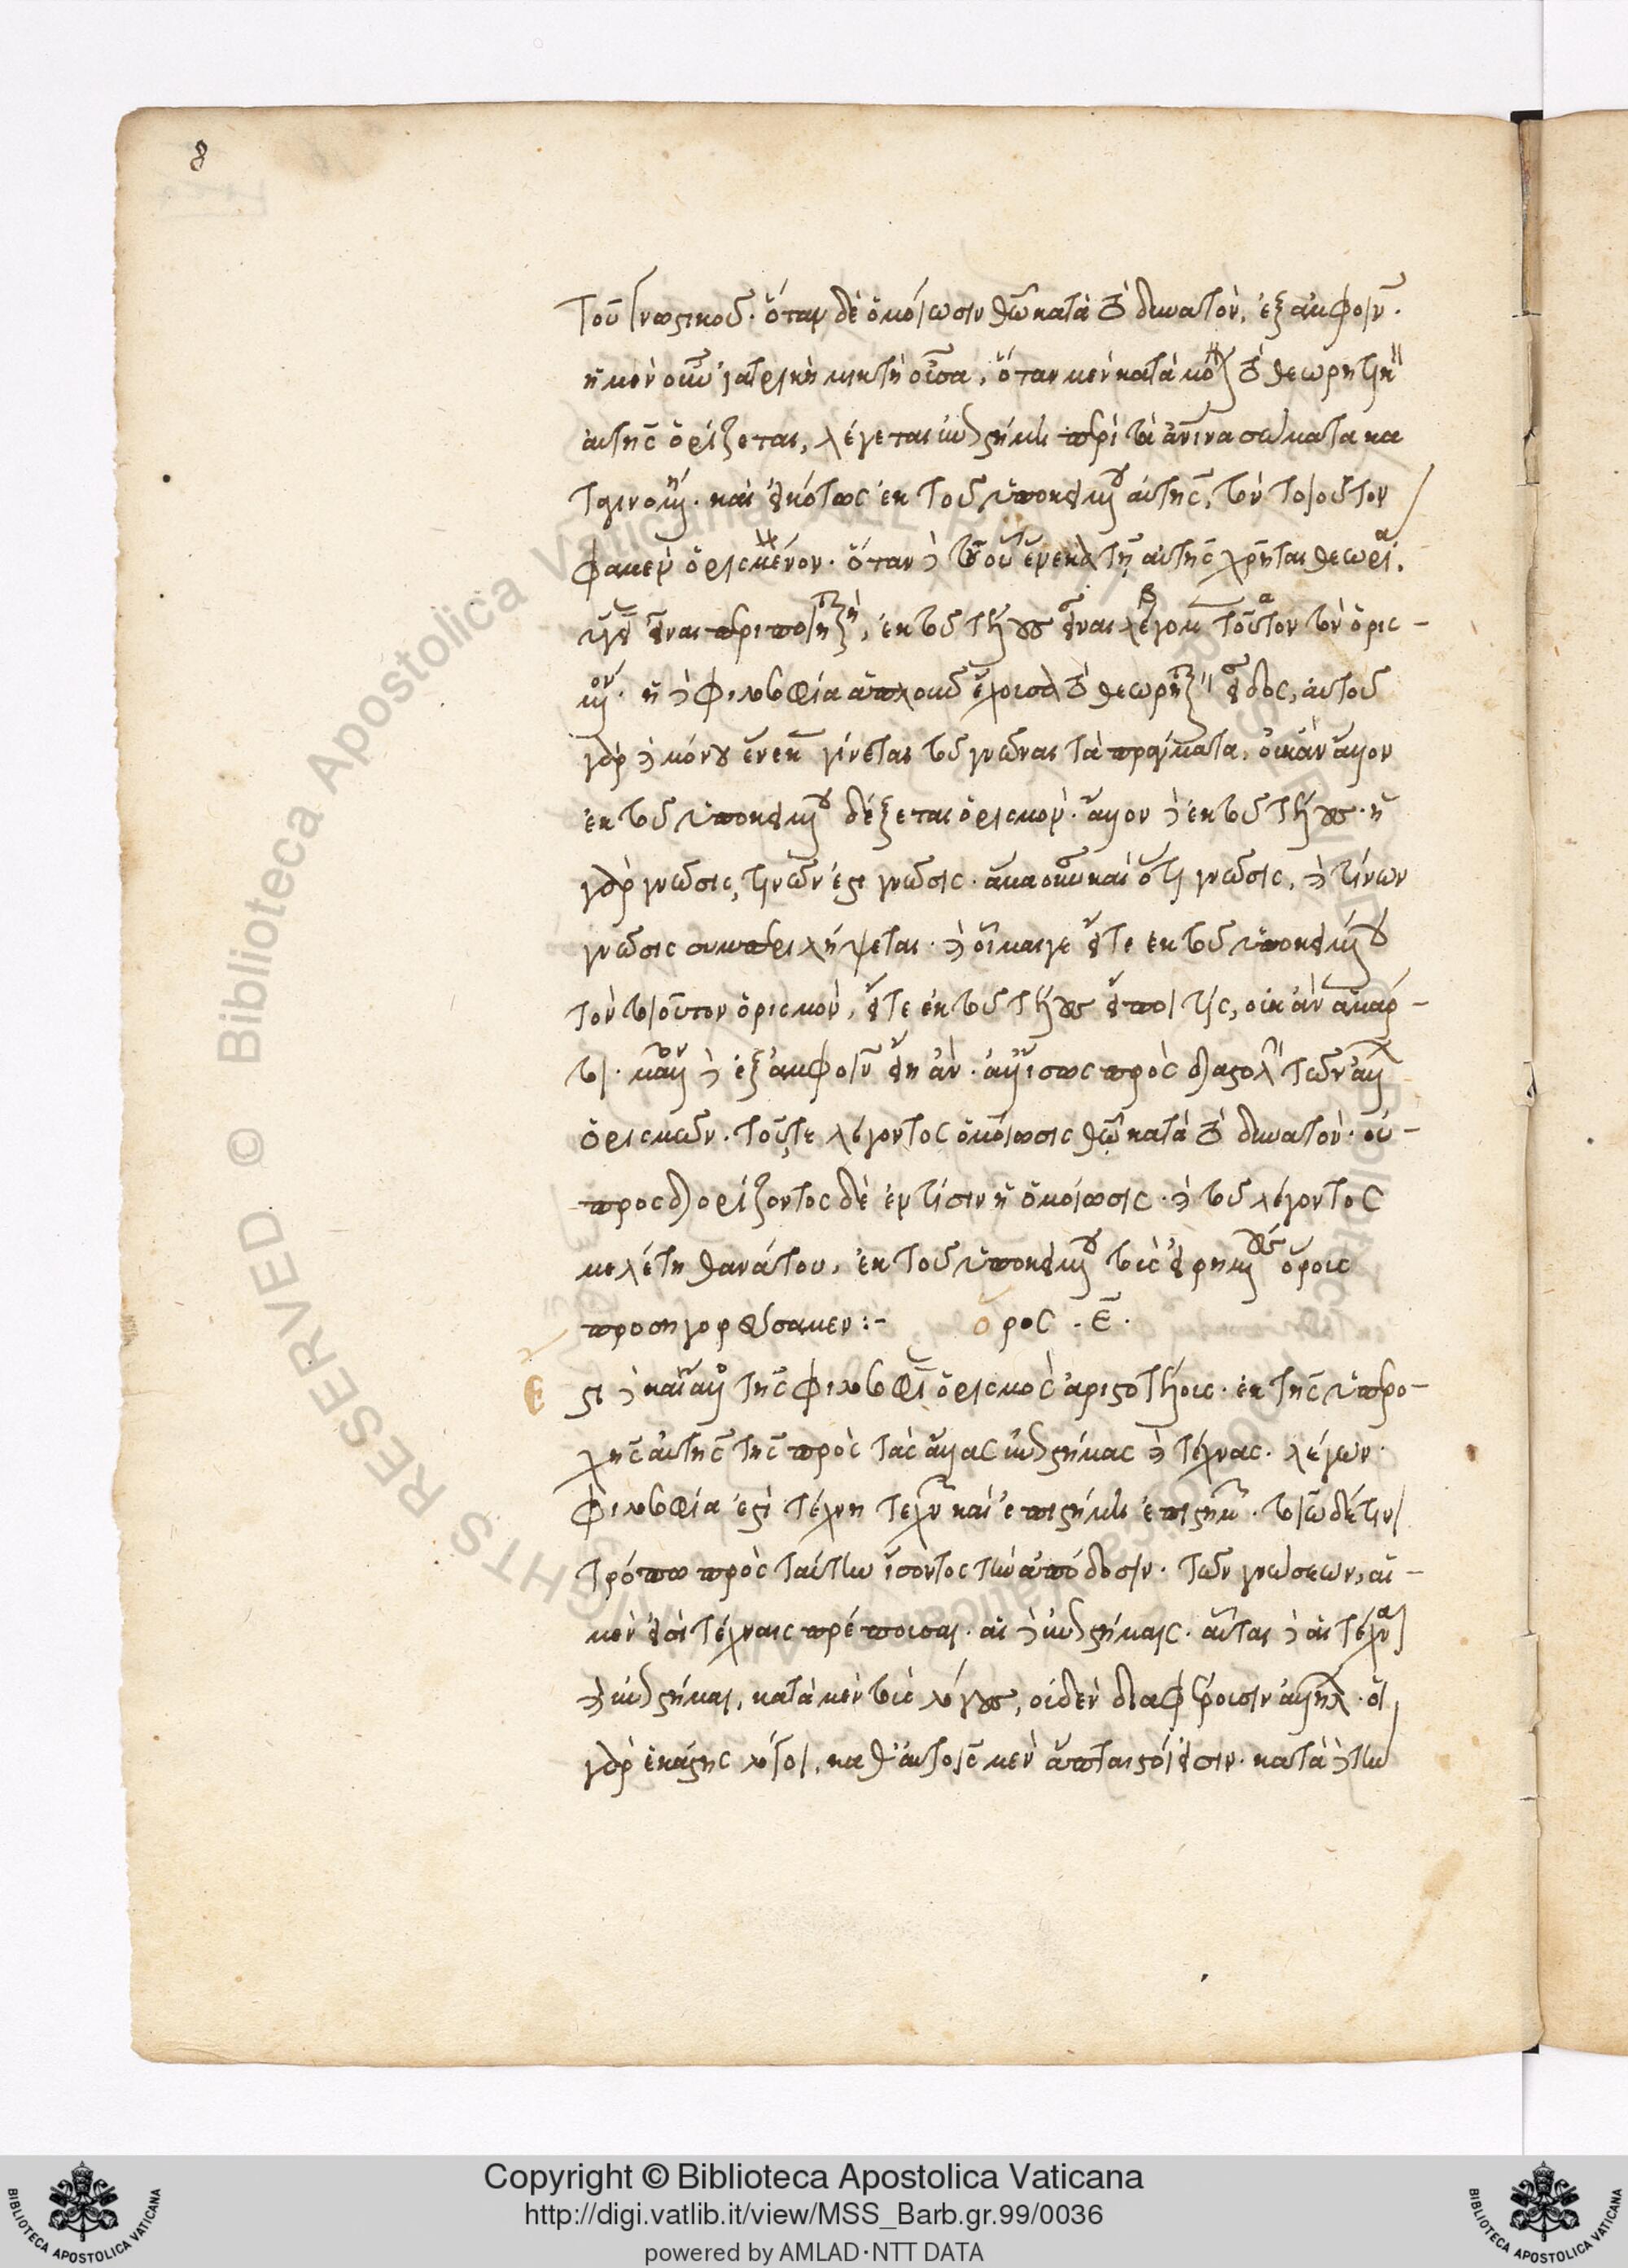 8
τοῦ γνωστικοῦ. ὅταν δὲ ὁμοίωσιν θεῶ κατὰ τὸ δυνατὸν, ἐξ ἀμφοῖν.
ἡ μὲν οὖν ἰατρικὴ μικτὴ οὖσα, ὅταν μὲν κατὰ μόνον τὸ θεωρητικὸν
αὐτῆς ὁρίζεται, λέγεται ἐπιστήμη περὶ τὰ ἀνινα σώματα κα
ταγινομένη. καὶ εἰκότως ἐκ τοῦ ὑποκειμένου αὐτῆς, τὸν τοιοῦτον
φαμὲν ὁρισμὸν. ὅταν δὲ τοῦ οὗ ἕνεκα τῆ αὐτῆς χρῆται θεωρία.
ὑγείας εἶναι περιποιητικὴ, ἐκ τοῦ τέλους εἶναι λέγομεν τοῦτον τὸν ὁρισ-
μόν. ἡ δὲ φιλοσοφία ἁπλοῦν ἔχουσα τὸ θεωρητικὸν εἶδος, αὐτοῦ
γὰρ δὲ μόνου ἕνεκα γίνεται τοῦ γνῶναι τὰ πράγματα, οὐκ ἂν ἄλλον
ἐκ τοῦ ὑποκειμένου δέξεται ὁρισμὸν. ἄλλον δὲ ἐκ τοῦ τέλους. ἡ
γὰρ γνῶσις, τινῶν ἐστι γνῶσις. ἅμα οὖν καὶ ὅτι γνῶσις, καὶ τίνων
γνῶσις συμπεριλήψεται. καὶ οἶμαι γε εἴτε ἐκ τοῦ ὑποκειμένου
τὸν τοιοῦτον ὁρισμὸν, εἴτε ἐκ τοῦ τέλους εἴποι τίς, οὐκ ἂν ἁμάρ-
τοι. μᾶλλον δὲ ἐξ ἀμφοῖν εἴη ἂν. ἀλλ' ἴσως πρὸς διαστολὴν τῶν ἄλλων
ὁρισμῶν. τοῦ τε λέγοντος ὁμοίωσις θεῶ κατὰ τὸ δυνατὸν. οὐ-
προσδιορίζοντος δὲ ἐν τίσιν ἡ ὁμοίωσις. καὶ τοῦ λέγοντος
μελέτη θανάτου, ἐκ τοῦ ὑποκειμένου τοὺς εἰρημένους ὅρους
προσηγορεύσαμεν :- ὅρος. ε̄.
Ἔστι δὲ καὶ ἄλλος τῆς φιλοσοφίας ὁρισμὸς ἀριστοτέλους. ἐκ τῆς ὑπερο-
χῆς αὐτῆς τῆς πρὸς τὰς ἄλλας ἐπιστήμας καὶ τέχνας. λέγων.
φιλοσοφία ἐστὶ τέχνη τεχνῶν καὶ ἐπιστήμη ἐπιστημῶν. τοιῶδέ τινι
τρόπω πρὸς ταύτην ἰόντος τὴν ἀπόδοσιν. τῶν γνώσεων, αἱ-
μὲν εἰσὶ τέχναις πρέπουσαι. αἱ δὲ ἐπιστήμαις. αὗται δὲ αἱ τέχναι
καὶ ἐπιστήμαι, κατὰ μὲν τοὺς λόγους, οὐδὲν διαφέρουσιν ἀλλήλων. οἱ
γὰρ ἑκάστης λόγοι, καθ' αὑτοὺς μὲν ἄπταιστοί εἰσιν. κατὰ δὲ τὴν
Copyright © Biblioteca Apostolica Vaticana
http://digi.vatlib.it/view/MSS_Barb.gr.99/0036
powered by AMLAD·NTT DATA